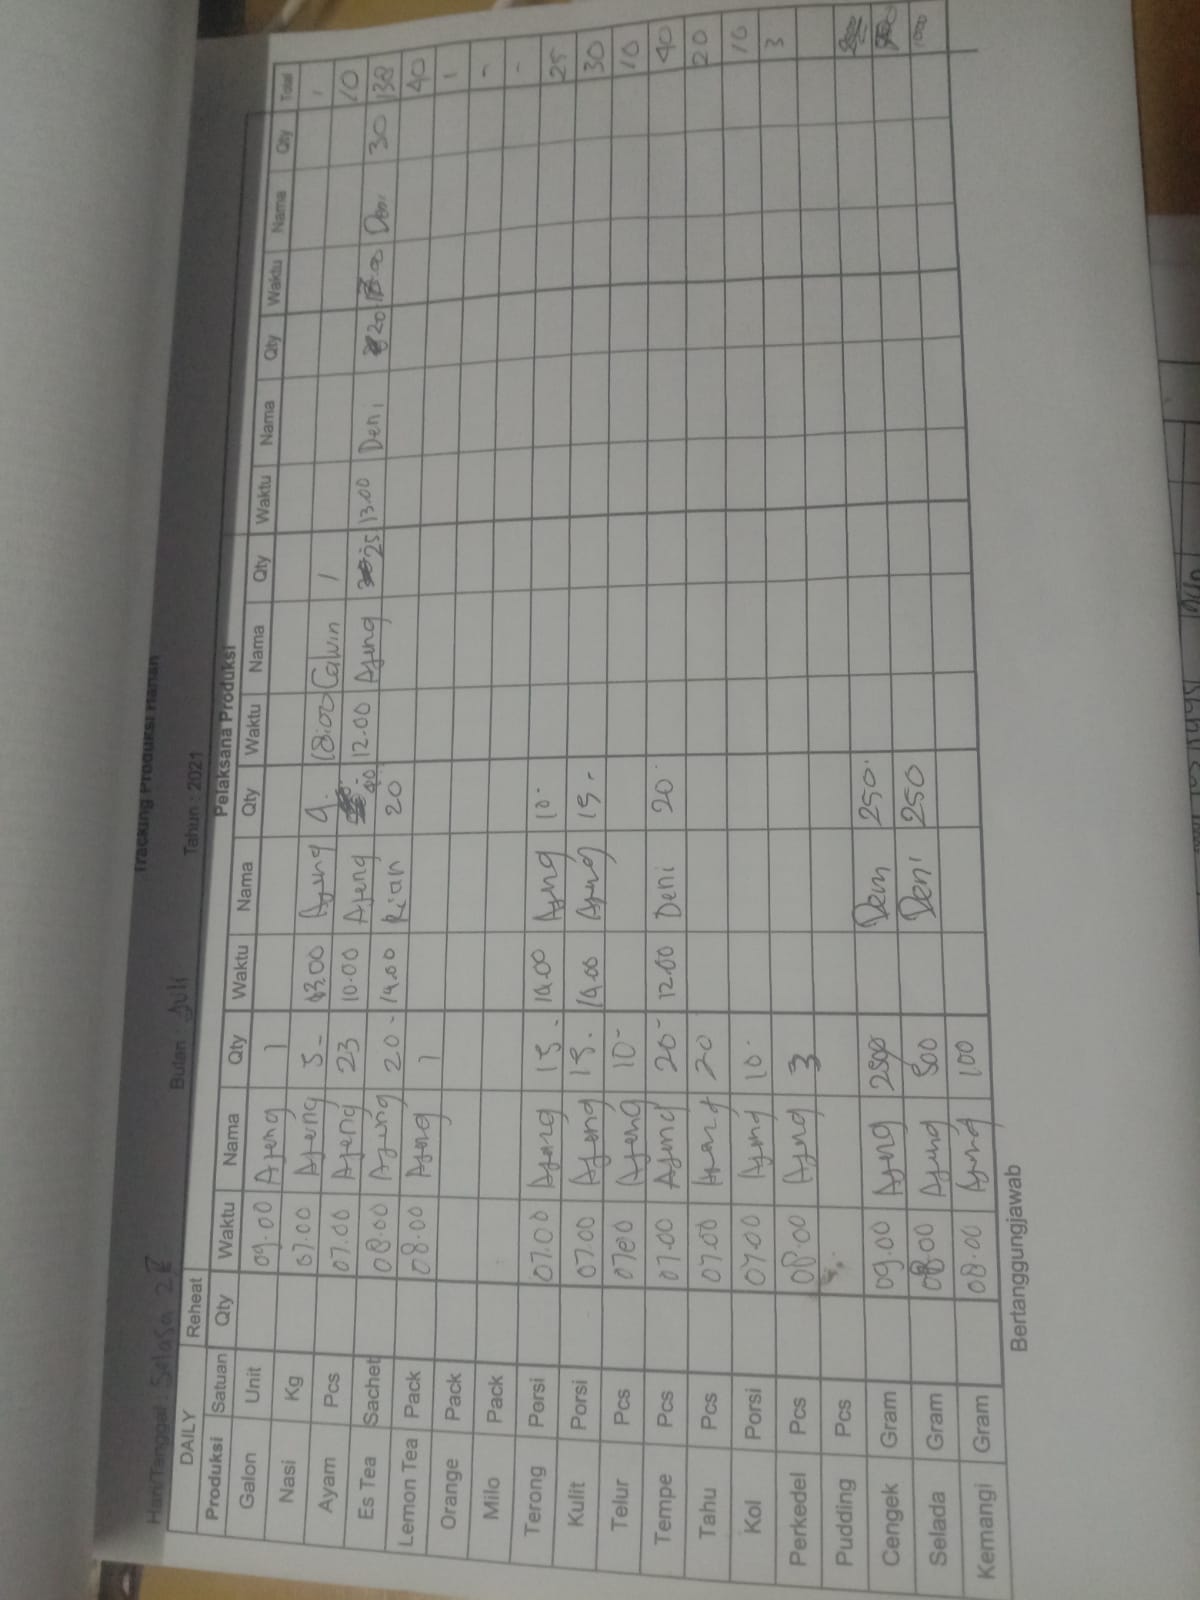 Tracking Produksi Harian
Hari/Tanggal : Selasa Bulan : Juli Tahun : 2021
DAILY Reheat Pelaksana Produksi
Produksi Satuan Qty Waktu Nama Qty Waktu Nama Qty Waktu Nama Qty Waktu Nama Qty Waktu Nama Qty Total
Galon Unit 09.00 Ajeng 1 1
Nasi Kg 07.00 Ajeng 5- 13.00 Ajeng 9. 18.00 Calvin 1 10
Ayam Pcs 07.00 Ajeng 23 10.00 Ajeng 40 12.00 Ajeng 25 13.00 Deni 20 Deni 30 138
Es Tea Sachet 08.00 Ajeng 20- 14.00 Rian 20 40
Lemon Tea Pack 08.00 Ajeng 1 1
Orange Pack -
Milo Pack -
Terong Porsi 07.00 Ajeng 15- 14.00 Ajeng 10. 25
Kulit Porsi 07.00 Ajeng 15. 14.00 Ajeng 15- 30
Telur Pcs 07.00 Ajeng 10- 10
Tempe Pcs 07.00 Ajeng 20- 12.00 Deni 20. 40
Tahu Pcs 07.00 Ajeng 20 20
Kol Porsi 07.00 Ajeng 10. 10
Perkedel Pcs 08.00 Ajeng 3 3
Pudding Pcs
Cengek Gram 09.00 Ajeng Deni 250.
Selada Gram 08.00 Ajeng 500 Deni 250
Kemangi Gram 08.00 Ajeng 100 1000
Bertanggungjawab